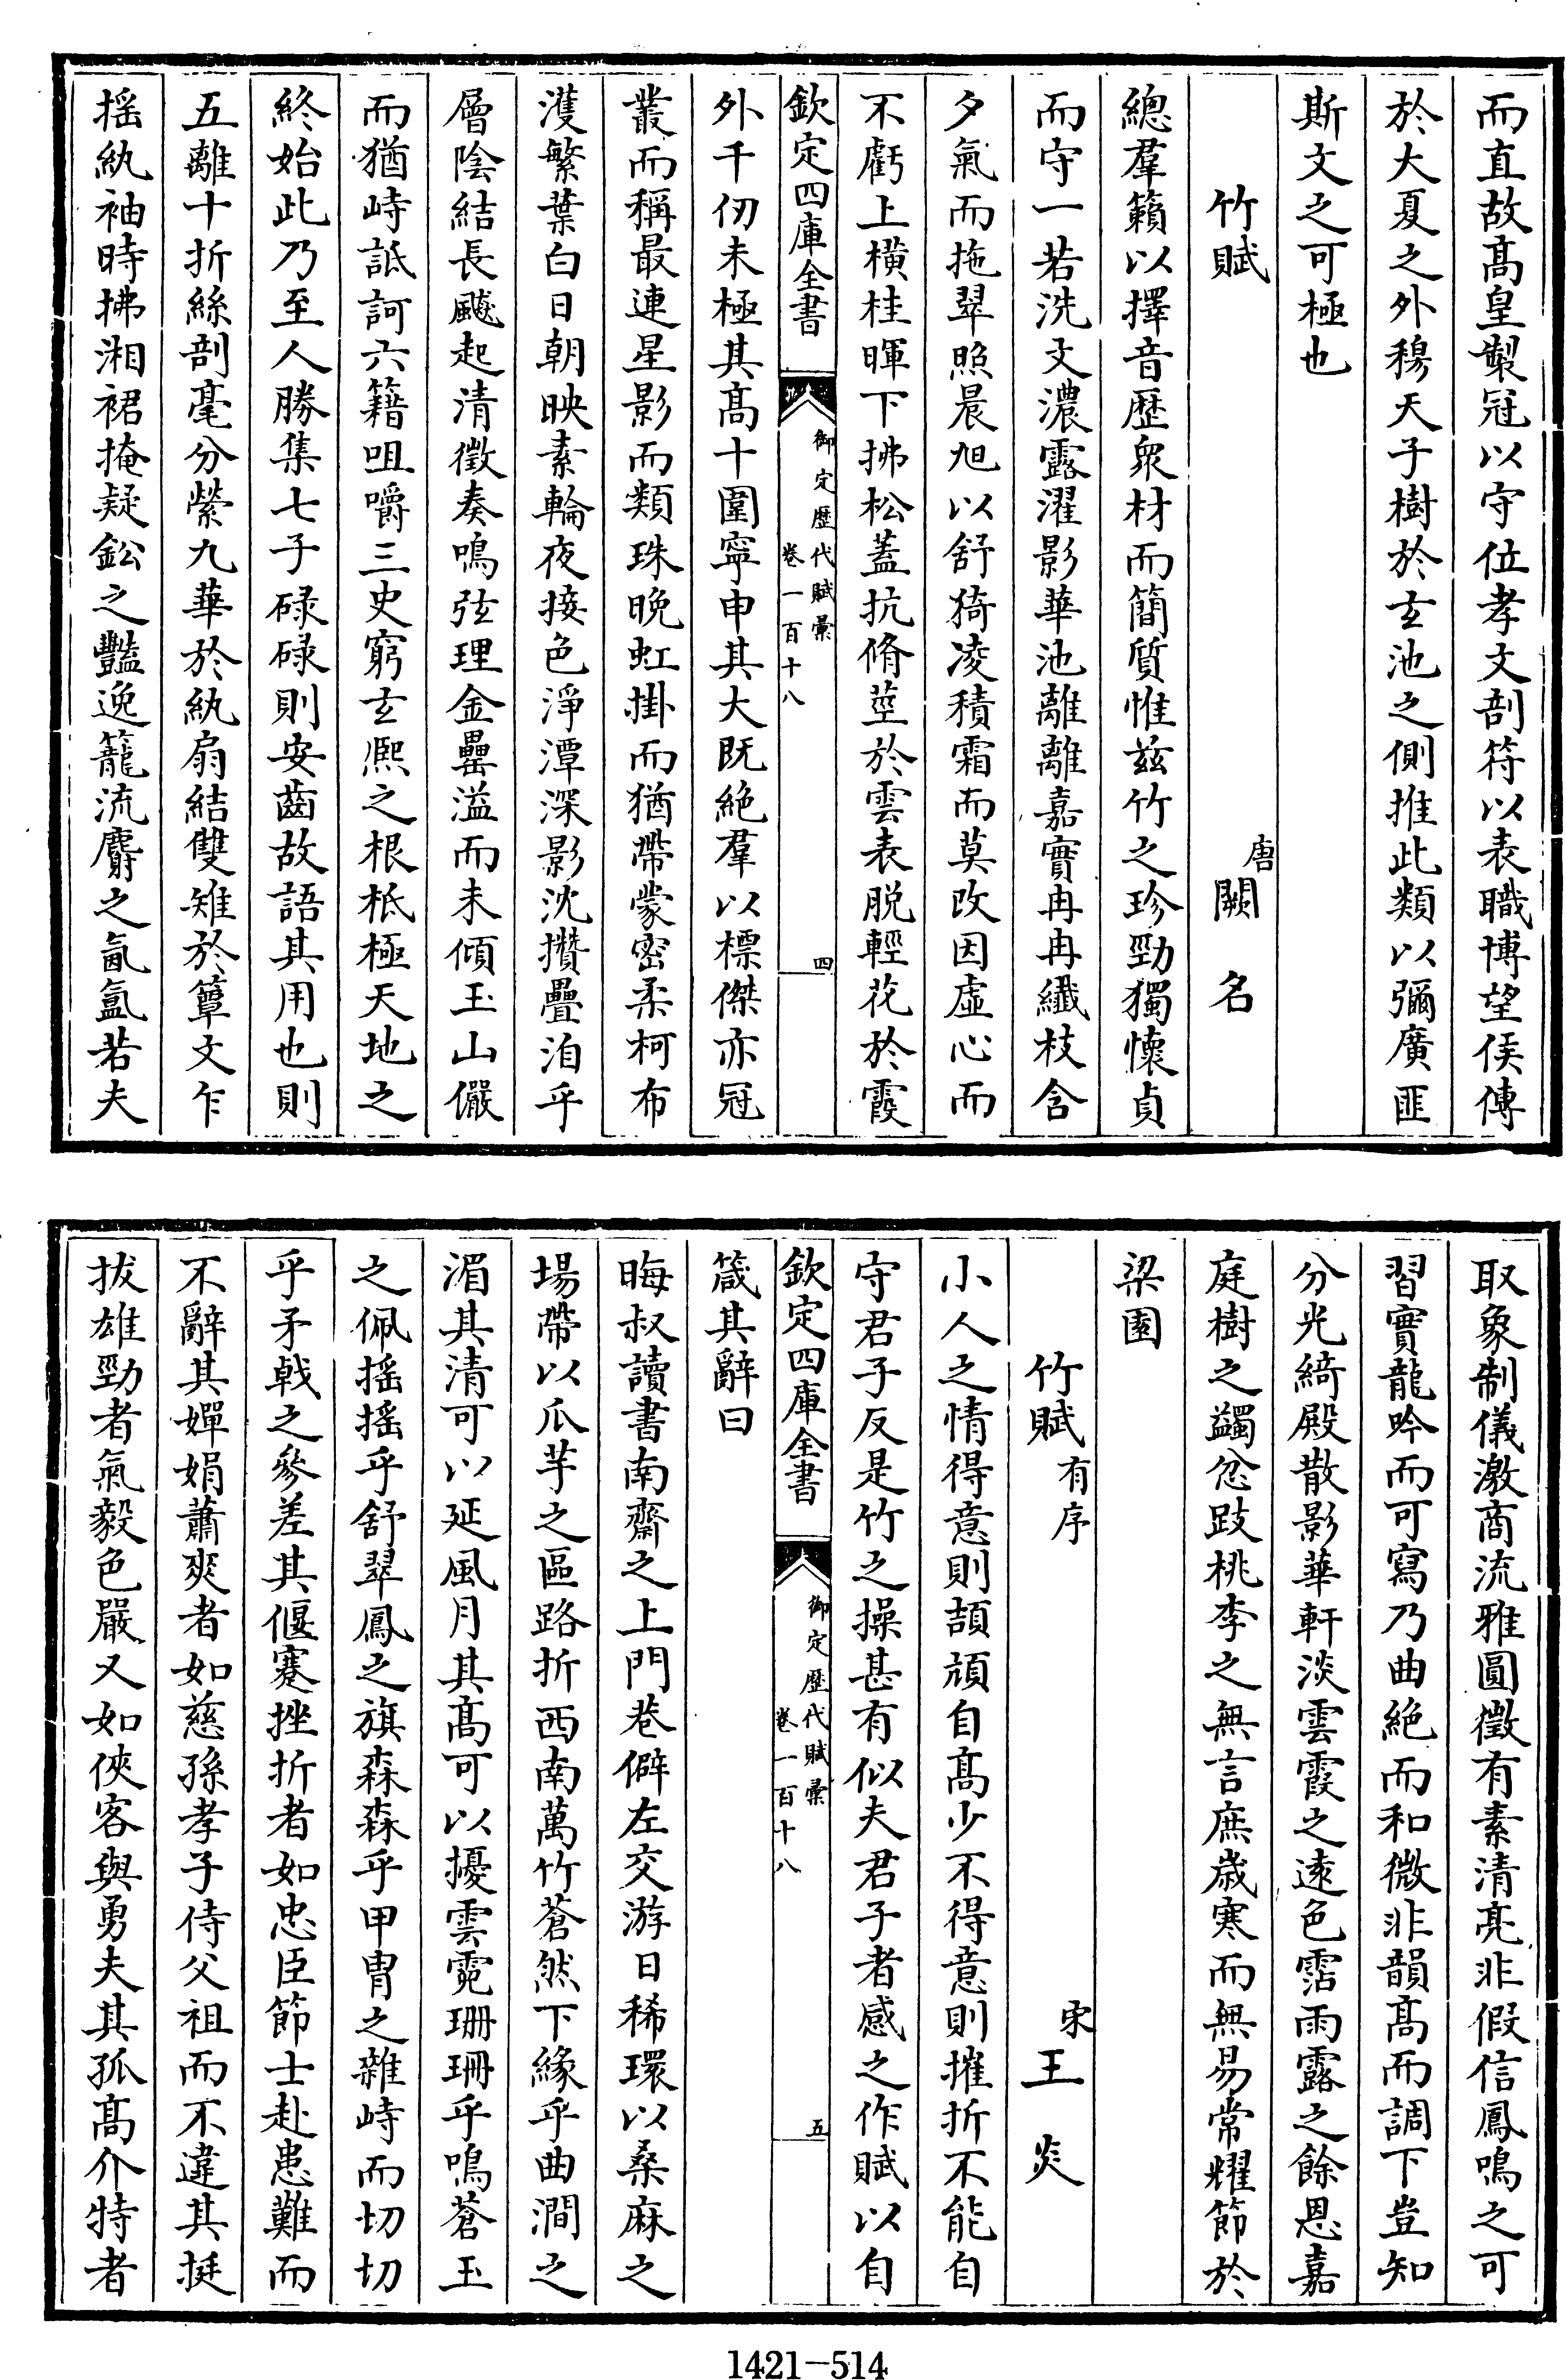 而直故髙皇製冠以守位孝文剖符以表職博望侯傳
於大夏之外穆天子樹於玄池之側推此類以彌廣匪
斯文之可極也
竹賦　唐　闕　名
總羣籟以擇音歴衆材而簡質惟兹竹之珍勁獨懐貞
而守一若洗文濃露濯影華池離離嘉實冉冉纖枝含
夕氣而拖翠照晨旭以舒猗凌積霜而莫改因虛心而
不虧上横桂暉下拂松蓋抗脩莖於雲表脱輕花於霞
欽定四庫全書　御定歴代賦彚　卷一百十八　四
外千仞未極其髙十圍寧申其大既絶羣以標傑亦冠
叢而稱最連星影而類珠晩虹掛而猶帶蒙密柔柯布
濩繁葉白日朝映素輪夜接色淨潭深影沈攢疊洎乎
層陰結長飇起清徵奏鳴弦理金罍溢而未傾玉山儼
而猶峙詆訶六籍咀嚼三史窮玄熈之根柢極天地之
終始此乃至人勝集七子碌碌則安齒故語其用也則
五離十折絲剖毫分縈九華於紈扇結雙雉於簟文乍
揺紈袖時拂湘裙掩疑鈆之豔逸籠流麝之氤氲若夫
取象制儀激商流雅圓徵有素清亮非假信鳳鳴之可
習實龍吟而可寫乃曲絶而和微非韻髙而調下豈知
分光綺殿散影華軒淡雲霞之逺色霑雨露之餘恩嘉
庭樹之蠲忿跂桃李之無言庶歳寒而無易常耀節於
梁園
竹賦有序　宋　王　炎
小人之情得意則頡頏自髙少不得意則摧折不能自
守君子反是竹之操甚有似夫君子者感之作賦以自
欽定四庫全書　御定歴代賦彚　卷一百十八　五
箴其辭曰
晦叔讀書南齋之上門巷僻左交游日稀環以桑麻之
場帶以瓜芋之區路折西南萬竹蒼然下緣乎曲澗之
湄其清可以延風月其髙可以擾雲霓珊珊乎鳴蒼玉
之佩揺揺乎舒翠鳳之旗森森乎甲胄之雜峙而切切
乎矛戟之參差其偃蹇挫折者如忠臣節士赴患難而
不辭其嬋娟蕭爽者如慈孫孝子侍父祖而不違其挺
拔雄勁者氣毅色嚴又如俠客與勇夫其孤髙介特者
1421-514